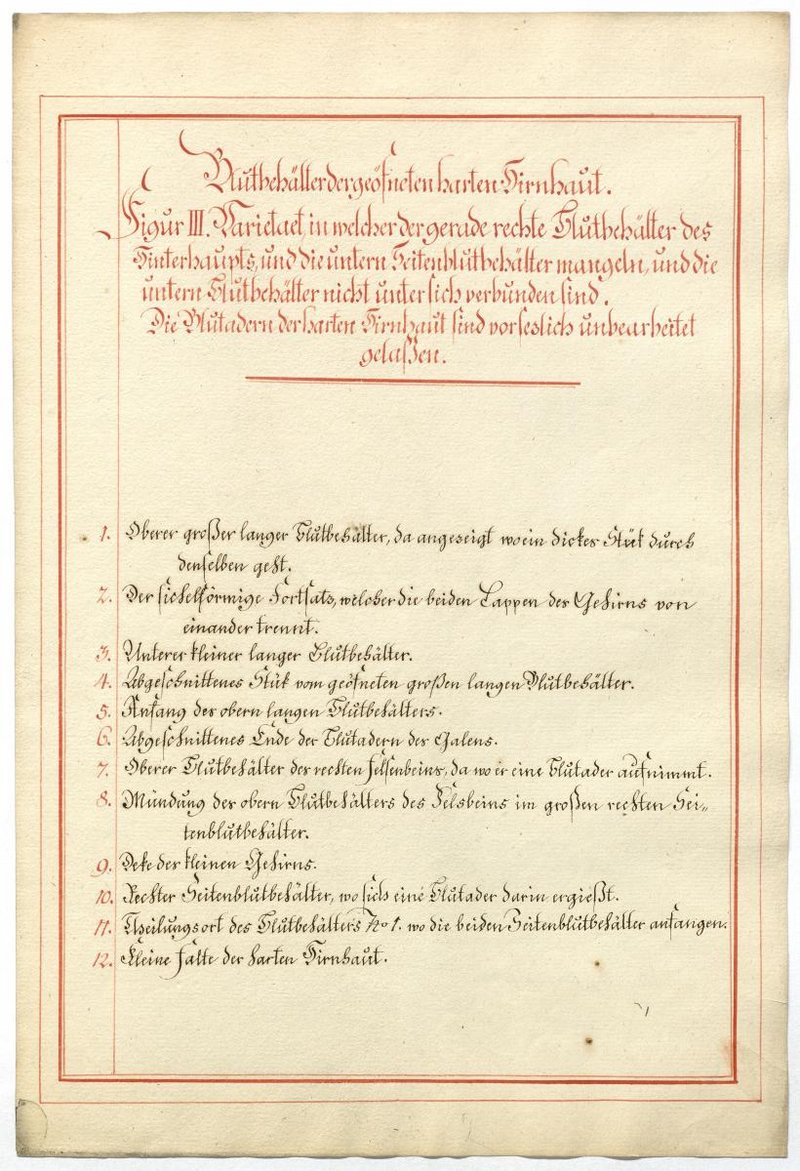 Blutbehälter der geöfneten harten Hirnhaut.
Figur III. Varietaet, in welcher der gerade rechte Blutbehälter des
Hinterhaupts, und die untern Seitenblutbehälter mangeln, und die
untern Blutbehälter nicht unter sich verbunden sind.
Die Blutadern der harten Hirnhaut sind vorseslich unbearbeitet
gelaßen.
1. Oberer großer langer Blutbehälter, da angezeigt wo ein dickes Stük durch
denselben geht.
2. Der sichelförmige Fortsatz, welcher die beiden Lappen des Gehirns von
einander trennt.
3. Unterer kleiner langer Blutbehälter.
4. Abgeschnittenes Stük vom geöfneten großen langen Blutbehälter.
5. Anfang des obern langen Blutbehälters.
6. Abgeschnittenes Ende der Blutadern des Galens.
7. Oberer Blutbehälter des rechten Felsenbeins, da wo er eine Blutader aufnimmt.
8. Mündung des obern Blutbehälters des Felsbeins im großen rechten Sei-
tenblutbehälter.
9. Deke des kleinen Gehirns.
10. Rechter Seitenblutbehälter, wo sich eine Blutader darin ergießt.
11. Theilungsort des Blutbehälters No 1. wo die beiden Seitenblutbehälter anfangen.
12. Kleine Falte der harten Hirnhaut.